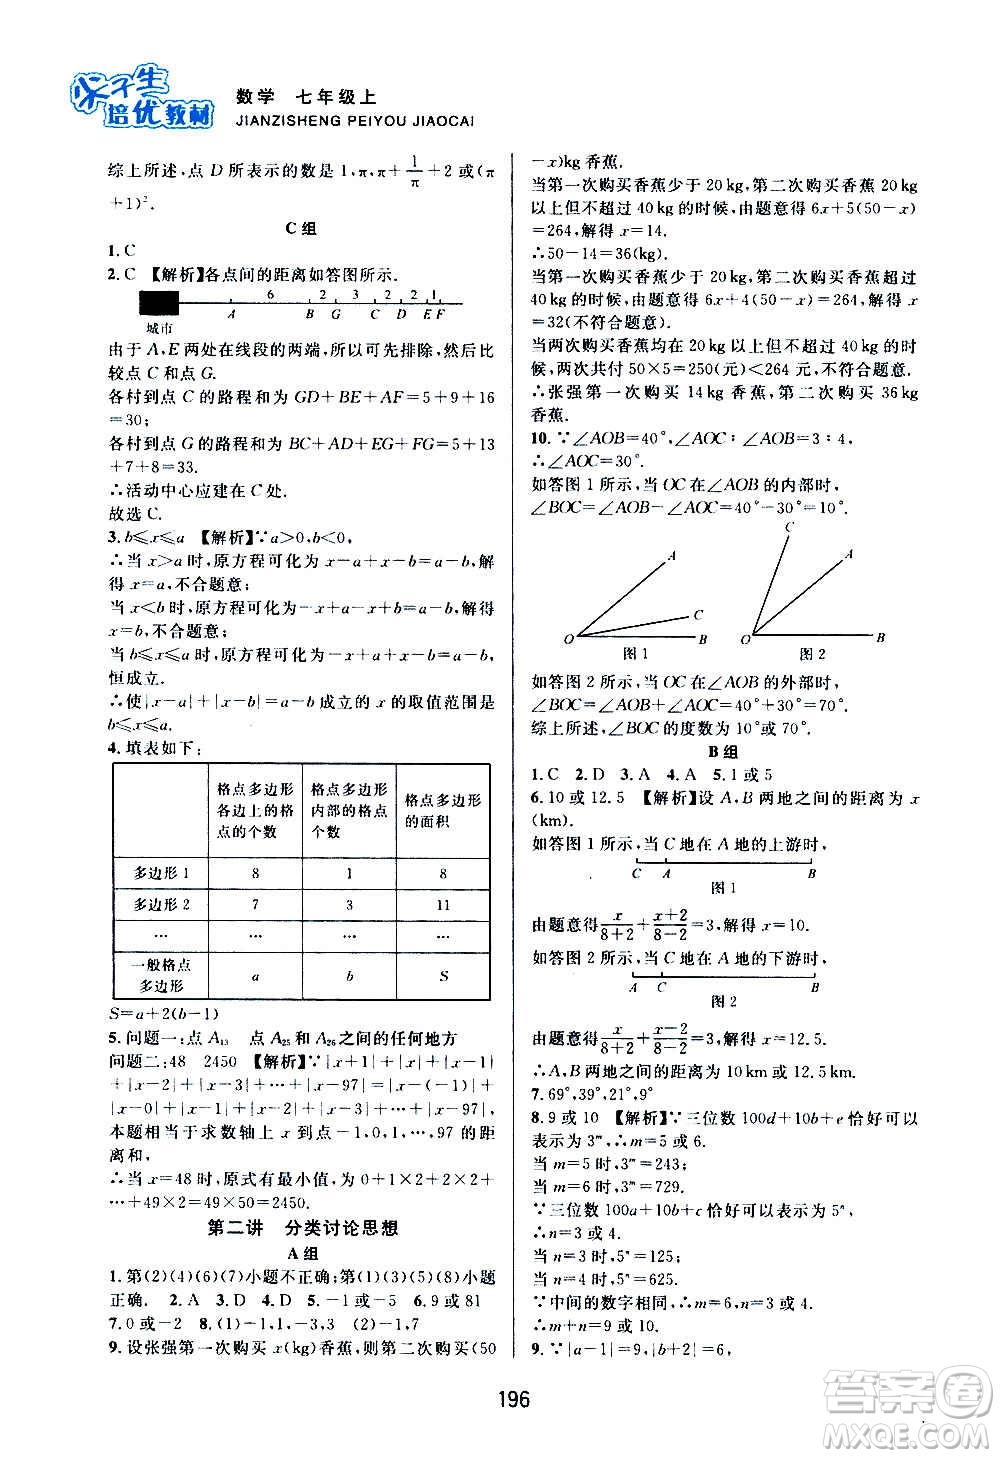 尖子生
培优教材
数学 七年级上
JIANZISHENG PEIYOU JIAOCAI
综上所述,点 D 所表示的数是 1,π,π+1/π+2 或(π
+1)².
C 组
1. C
2. C 【解析】各点间的距离如答图所示.
6 2 3 2 2 1
A B G C D E F
城市
由于 A,E 两处在线段的两端,所以可先排除,仅比
较点 C 和点 G.
各村到点 C 的路程和为 GD+BE+AF=5+9+16
=30;
各村到点 G 的路程和为 BC+AD+EG+FG=5+13
+7+8=33.
∴活动中心应建在 C 处.
故选 C.
3. b≤x≤a 【解析】∵a>0,b<0,
∴当 x>a 时,原方程可化为 x-a+x-b=a-b,解
得 x=a,不合题意;
当 x<b 时,原方程可化为-x+a-x+b=a-b,解得
x=b,不合题意;
当 b≤x≤a 时,原方程可化为-x+a+x-b=a-b,
恒成立.
∴使|x-a|+|x-b|=a-b 成立的 x 的取值范围是
b≤x≤a.
4. 填表如下:
格点多边形各边上的格点的个数 格点多边形内部的格点个数 格点多边形的面积
多边形 1 8 1 8
多边形 2 7 3 11
… … … …
一般格点多边形 a b S
S=a+2(b-1)
5. 问题一:点 A₁₃ 点 A₂₅ 和 A₂₆ 之间的任何地方
问题二:48 2450 【解析】∵|x+1|+|x|+|x-1|
+|x-2|+|x-3|+…+|x-97|=|x-(-1)|+
|x-0|+|x-1|+|x-2|+|x-3|+…+|x-97|,
本题相当于求数轴上 x 到点-1,0,1,…,97 的距
离和,
∴当 x=48 时,原式有最小值,为 0+1×2+2×2+
…+49×2=49×50=2450.
第二讲 分类讨论思想
A 组
1. 第(2)(4)(6)(7)小题不正确;第(1)(3)(5)(8)小题
正确. 2. A 3. D 4. D 5. -1 或-5 6. 9 或 81
7. 0 或-2 8. (1)-1,1,-3,3 (2)-1,7
9. 设张强第一次购买 x(kg)香蕉,则第二次购买(50
-x)kg 香蕉.
当第一次购买香蕉少于 20 kg,第二次购买香蕉 20 kg
以上但不超过 40 kg 的时候,由题意得 6x+5(50-x)
=264,解得 x=14.
∴50-14=36(kg)
当第一次购买香蕉少于 20 kg,第二次购买香蕉超过
40 kg 的时候,由题意得 6x+4(50-x)=264,解得 x
=32(不符合题意).
当两次购买香蕉均在 20 kg 以上但不超过 40 kg 的时
候,两次共付 50×5=250(元)<264 元,不符合题意.
∴张强第一次购买 14 kg 香蕉,第二次购买 36 kg
香蕉.
10. ∵∠AOB=40°,∠AOC∶∠AOB=3∶4,
∴∠AOC=30°.
如答图 1 所示,当 OC 在∠AOB 的内部时,
∠BOC=∠AOB-∠AOC=40°-30°=10°.
A C O B
图 1
C A O B
图 2
如答图 2 所示,当 OC 在∠AOB 的外部时,
∠BOC=∠AOB+∠AOC=40°+30°=70°.
综上所述,∠BOC 的度数为 10°或 70°.
B 组
1. C 2. D 3. A 4. A 5. 1 或 5
6. 10 或 12.5 【解析】设 A,B 两地之间的距离为 x
(km).
如答图 1 所示,当 C 地在 A 地的上游时,
C A B
图 1
由题意得 x/(8+2)+(x+2)/(8-2)=3,解得 x=10.
如答图 2 所示,当 C 地在 A 地的下游时,
A C B
图 2
由题意得 x/(8+2)+(x-2)/(8-2)=3,解得 x=12.5.
∴A,B 两地之间的距离为 10 km 或 12.5 km.
7. 69°,39°,21°,9°
8. 9 或 10 【解析】∵三位数 100d+10b+e 恰好可以
表示为 3ᵐ,∴m=5 或 6.
当 m=5 时,3ᵐ=243;
当 m=6 时,3ᵐ=729.
∵三位数 100a+10b+c 恰好可以表示为 5ⁿ,
∴n=3 或 4.
当 n=3 时,5ⁿ=125;
当 n=4 时,5ⁿ=625.
∵中间的数字相同,∴m=6,n=3 或 4,
∴m+n=9 或 10.
9. ∵|a-1|=9,|b+2|=6,
196
答案圈
MXQE.COM